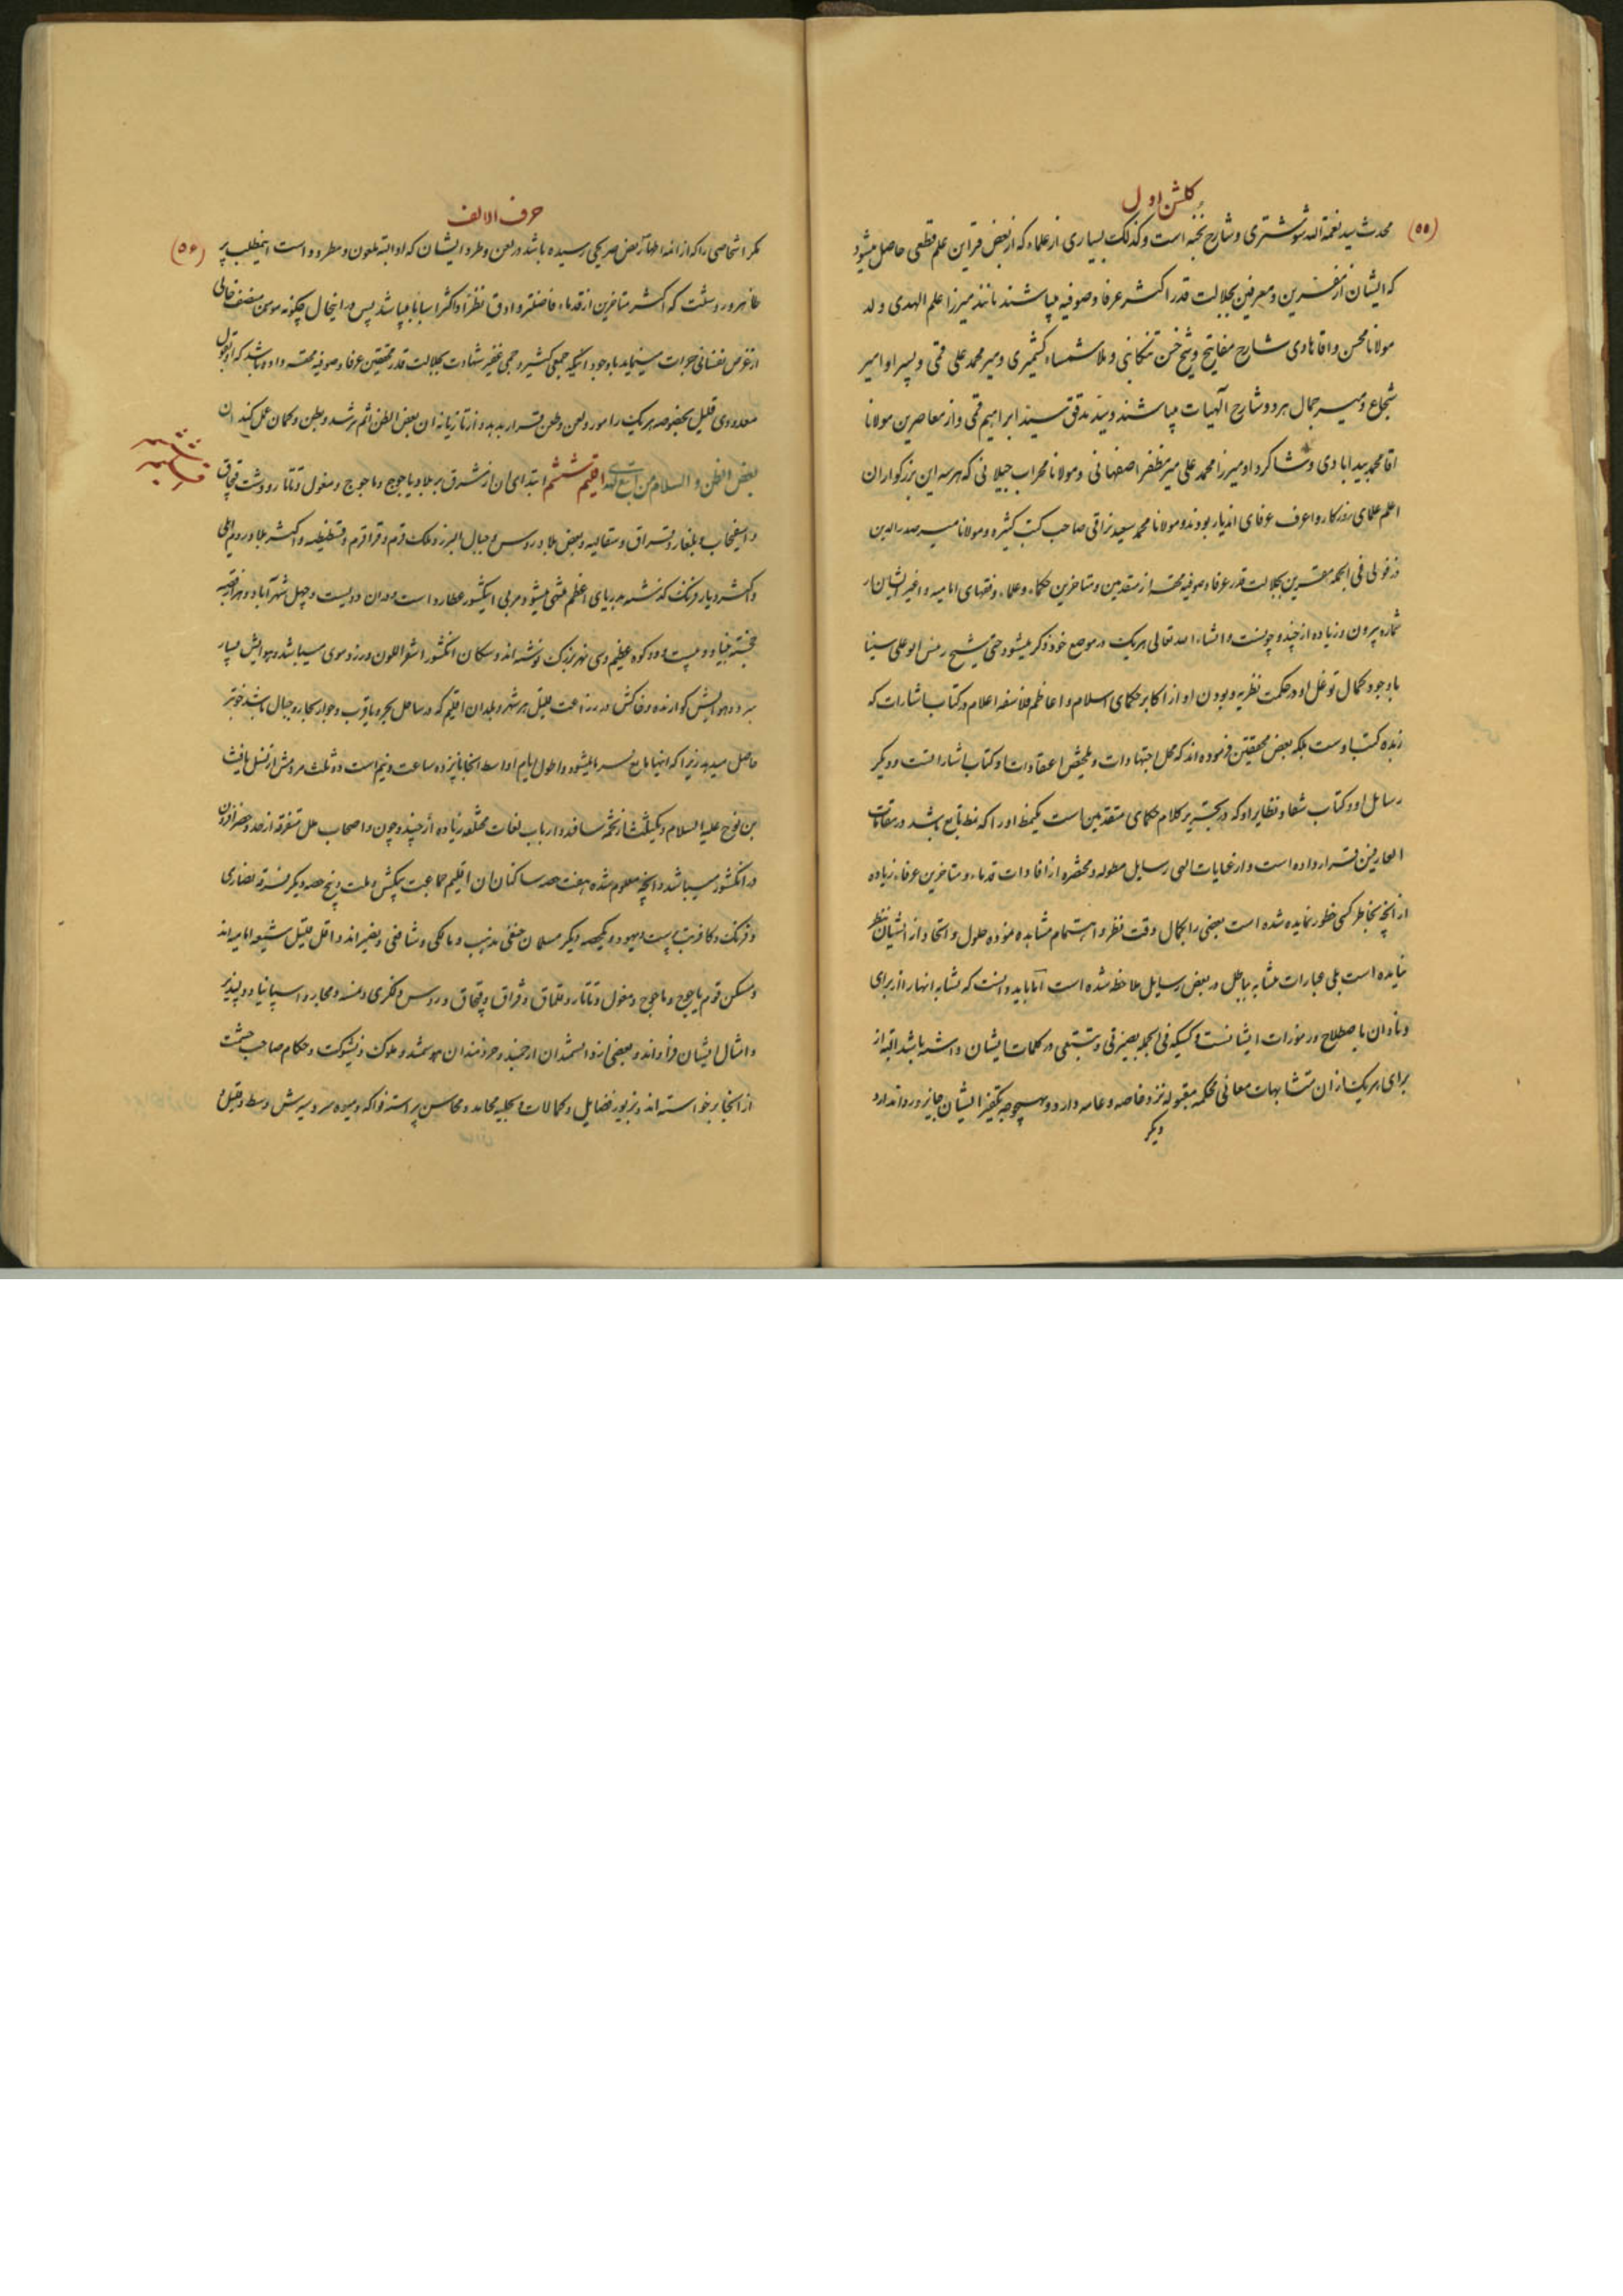 گلشن اول
(۵۵)
محدث سید نعمة الله شوشتری و شارح نخبه است و کذلک بسیاری از علماء که از بعض قراین علم قطعی حاصل میشود
که ایشان از مقرین و معرفین بجلالت قدر اکثر عرفا و صوفیه میباشند مانند میرزا علم الهدی ولد
مولانا محسن و اقا هادی شارح مفاتیح و شیخ حسن تنکابنی و ملا شمساء کشمیری و میر محمد علی قمی و پسر او امیر
شجاع و میر جمال هر دو شارح آلهیات میباشند و سید مدقق سید ابراهیم قمی و از معاصرین مولانا
اقا محمد بیدابادی و شاکرد او میرزا محمد علی میر مظفر اصفهانی و مولانا محراب جیلانی که هر سه این بزرکواران
اعلم علمای روزکار و اعرف عرفای اندیار بودند و مولانا محمد سعید نراقی صاحب کتب کثیره و مولانا میر صدر الدین
دزفولی فی الجمله مقرین بجلالت قدر عرفاء صوفیه محقه از متقدمین و متاخرین حکماء و علماء و فقهای امامیه و اغیر ایشان از
شماره بیرون و زیاده از چند و چونست و انشاء الله تعالی هریک در موضع خود ذکر میشود حتی شیخ رئیس ابو علی سینا
با وجود کمال توغل او در حکمت نظریه و بودن او از اکابر حکمای اسلام و اعاظم فلاسفه اعلام در کتاب اشارات که
زبده کتب اوست بلکه بعض محققین فرموده اند که محل اجتهادات و ملخص اعتقادات او کتاب اشاراتست و دیکر
رسایل او و کتاب شفا و نظایر او که در تحریر کلام حکمای متقدمین است یکنمط او را که نمط تاسع باشد در مقامات
العارفین قرار داده است و از غایات الهی رسایل مطوله و مختصره از افادات قدماء و متاخرین عرفاء زیاده
از آنچه بخاطر کسی خطور نماید دیده شده است بعضی را بکمال دقت نظر و اهتمام مشاهده نموده حلول و اتحاد از ایشان بنظر
نیامده است بلی عبارات متشابه بباطل در بعض رسایل ملاحظه شده است اما باید دانست که تشابه انها از برای
ونادان باصطلاح و رموزات ایشانست و کسیکه فی الجمله بصیرتی و تتبعی در کلمات ایشان داشته باشد البته از
برای هریک از ان متشابهات معانی محکمه مقبوله نزد خاصه و عامه دارد و بهیچوجه تکفیر ایشان جایز و روا ندارد
دیکر
حرف الالف
(۵۶)
مکر اشخاصی را که از ائمه اطهار نص صریحی رسیده باشد در لعن و طرد ایشان که او البته ملعون و مطرود است اینمطلب بر
ظاهر و روشنست که اکثر متاخرین از قدماء فاضلتر و ادق نظرا و اکثر اسبابا میباشد پس در اینحال چکونه مومن منصف خالی
از غرض نفسانی جرات مینماید با وجود اینکه جمعی کثیر و جمی غفیر شهادت بجلالت قدر محققین عرفا و صوفیه محقه داده باشد که او بقول
معدودی قلیل بخصوصه هریک را مورد لعن و طعن قرار بدهد و از تازیانه ان بعض الظن اثم نترسد و بظن و کمان عمل کند ان
بعض الظن و السلام من اتبع الهدی اقلیم ششم ابتدای ان از مشرق بر بلاد یاجوج و ماجوج و مغول و تاتار و دشت قپچاق
و اسفجاب و بلغار و قراق و سقالبه و بعض بلاد روس و جبال البرز و ملک قرم و قراقرم و قسطنطنیه و اکثر بلاد روم ایلی
و اکثر دیار فرنک کذشته بدریای اعظم منتهی میشود مربی اینکشور عطارد است و در ان دویست و چهل شهر آباد و هزار قصبه
خجسته بنیاد و بیست و دو کوه عظیم و سی نهر بزرک نوشته اند و سکان انکشور اشقر اللون و زرد موی میباشد و هوایش بسیار
سرد و هوایش کوارنده و خاکش در زراعت قلیل هر شهر و بلدان اقلیم که در ساحل بحر و یا قرب و جوار بحار و جبال باشد خوبتر
حاصل میدهد زیرا که انها مانع سرما میشود و اطول ایام اواسط انجا پانزده ساعت و نیم است دو ثلث مردمش از نسل یافث
بن نوح علیه السلام و یکثلث از تخمه سام اند و ارباب لغات مختلفه زیاده از چند و چون و اصحاب ملل متفرقه از حد و حصر افزون
در انکشور میباشد و انچه معلوم شده هفت حصه ساکنان ان اقلیم جماعت بیکیش و ملت و پنج حصه دیکر فرقه نصاری
و فرنک و کافر بت پرست و یهود و یکحصه دیکر مسلمان حنفی مذهب و مالکی و شافعی و غیر اند و اقل قلیل شیعه امامیه اند
و مسکن قوم یاجوج و ماجوج و مغول و تاتار و قلماق و قراق و قپچاق و روس و انکری و نمسه و مجار و اسپانیا و
و امثال ایشان فراوانند و بعضی از دانشمندان ارجمند و خردمندان هوشمند و ملوک ذیشوکت و حکام صاحب حشمت
از انجا برخواسته اند و بزیور فضایل و کمالات و بحلیه محامد و محاسن پیراسته فواکه و میوه سردسیرش وسط و قلیل و
قلیم ششم